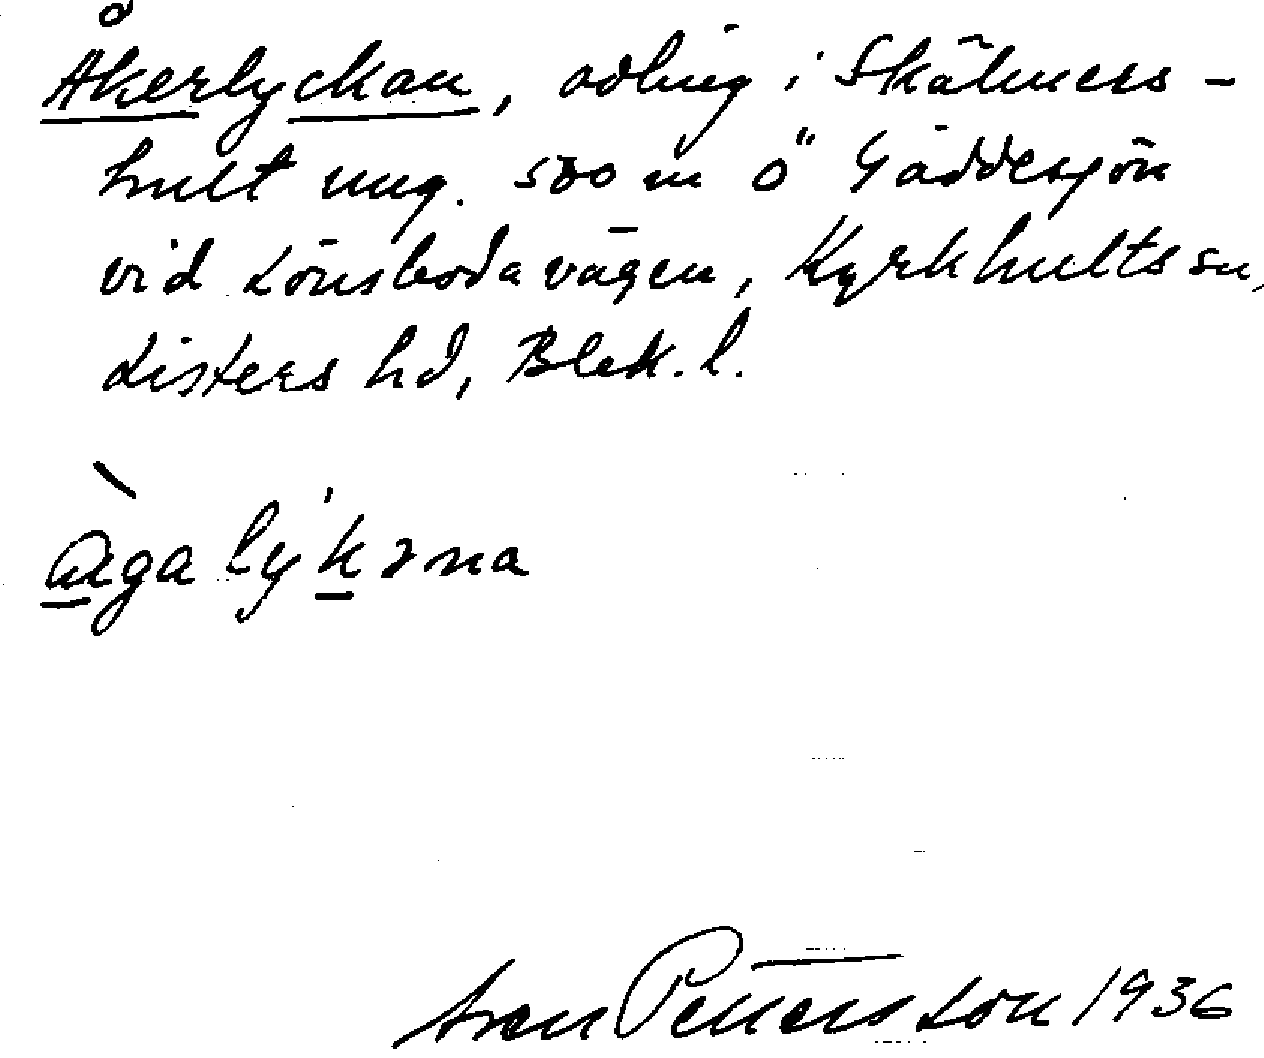 Åkerlyckan, odling i Skälmers-
hult ung. 500 m ö Gäddesjön
vid Lönsbodavägen, Kyrkhults sn,
Listers hd, Blek. l.
àgalýkəna
Sven Pettersson 1936